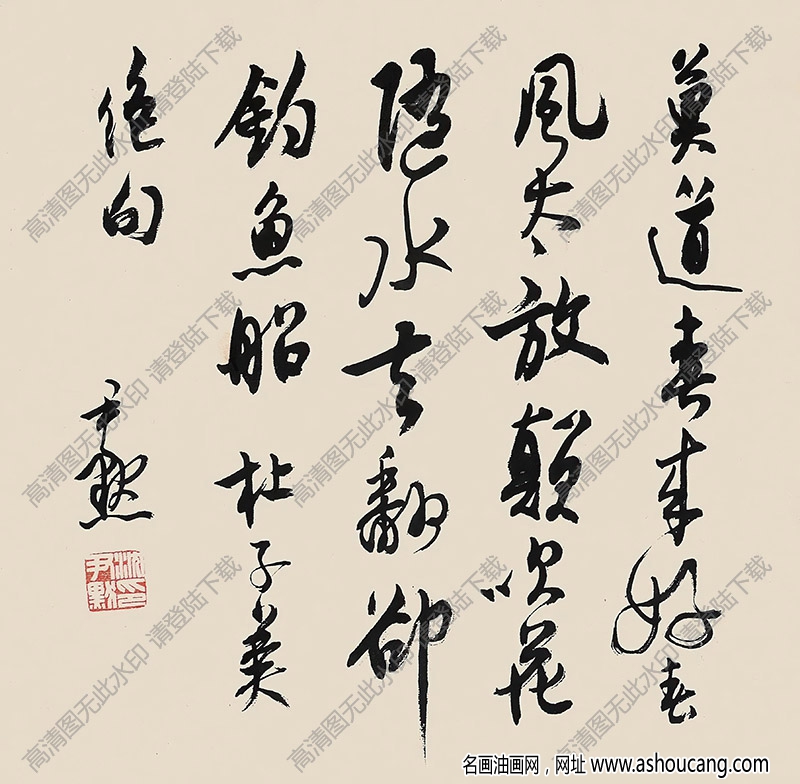 莫道春来好春
風太放顛吹花
隨水去翻卻
釣魚船 杜子美
絕句 尹默
沈尹默印
高清图无此水印 请登陆下载
名画油画网，网址 www.ashoucang.com